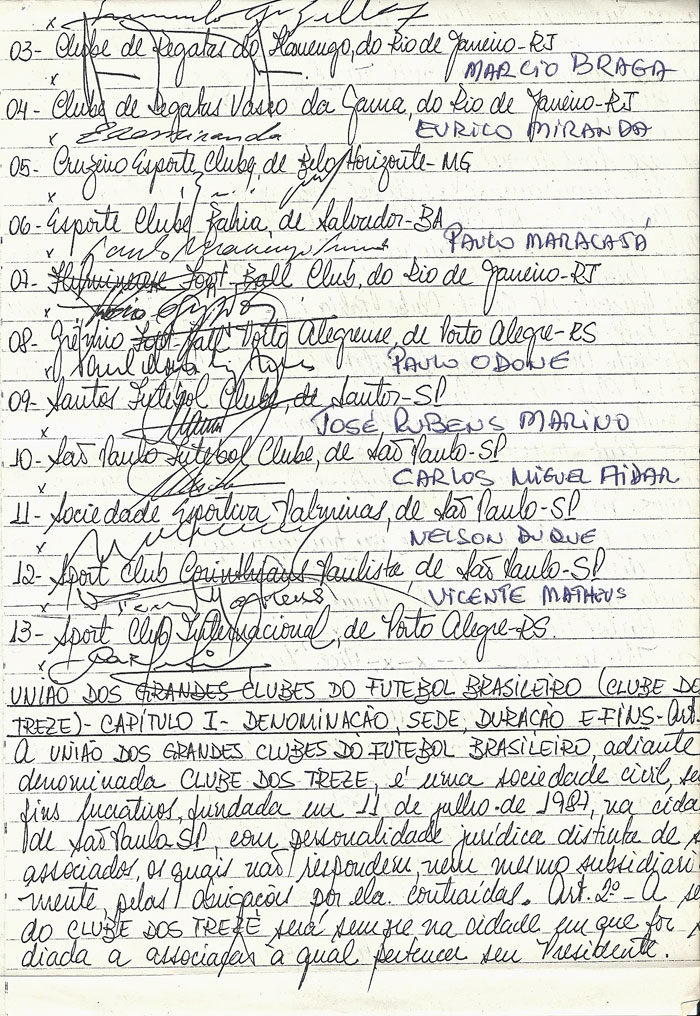 03- Clube de Regatas do Flamengo, do Rio de Janeiro-RJ
x
MARCIO BRAGA
04- Clube de Regatas Vasco da Gama, do Rio de Janeiro-RJ
x
EURICO MIRANDA
05- Cruzeiro Esporte Clube, de Belo Horizonte-MG
x
06- Esporte Clube Bahia, de Salvador-BA
x
PAULO MARACAJÁ
07- Fluminense Foot-Ball Club, do Rio de Janeiro-RJ
x
08- Grêmio Foot-Ball Porto Alegrense, de Porto Alegre-RS
x
PAULO ODONE
09- Santos Futebol Clube, de Santos-SP
x
JOSÉ RUBENS MARINO
10- São Paulo Futebol Clube, de São Paulo-SP
x
CARLOS MIGUEL AIDAR
11- Sociedade Esportiva Palmeiras, de São Paulo-SP
x
NELSON DUQUE
12- Sport Club Corinthians Paulista, de São Paulo-SP
x
VICENTE MATHEUS
13- Sport Club Internacional, de Porto Alegre-RS.
x
UNIÃO DOS GRANDES CLUBES DO FUTEBOL BRASILEIRO (CLUBE DE
TREZE)- CAPÍTULO I- DENOMINAÇÃO, SEDE, DURAÇÃO E FINS- Art.
A UNIÃO DOS GRANDES CLUBES DO FUTEBOL BRASILEIRO, adiante
denominada CLUBE DOS TREZE, é uma sociedade civil, se
fins lucrativos, fundada em 11 de julho de 1987, na cida
de São Paulo SP, com personalidade jurídica distinta de s
associados, os quais não respondem, nem mesmo subsidiari
mente, pelas obrigações por ela contraídas. Art. 2º- A se
do CLUBE DOS TREZE será sempre na cidade em que for s
diada a associação à qual pertencer seu Presidente.